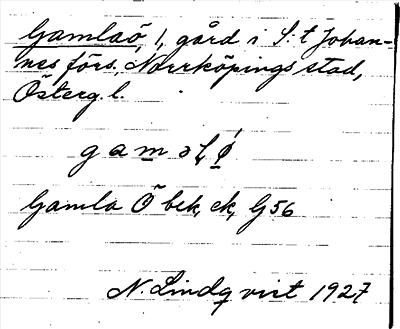 Gamlaö, 1, gård i S:t Johan-
nes förs., Norrköpings stad,
Österg. l.
Gamla Ö bek, ek, G56
N. Lindqvist 1927